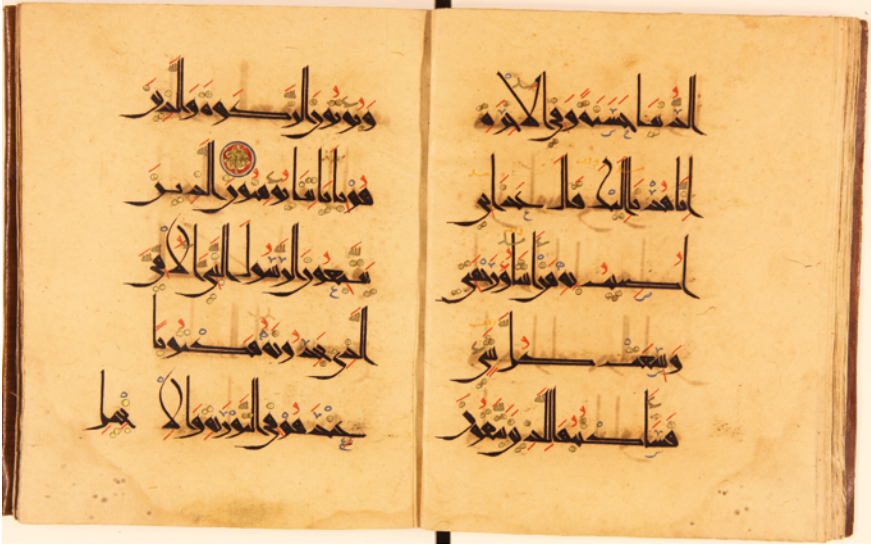 الدنيا حسنة وفي الاخرة
انا هدنا اليك قال عذابي
اصيب به من اشاء ورحمتي
وسعت كل شي
فساكتبها للذين يتقون
ويوتون الزكوة والذين
هم باياتنا يومنون الذين
يتبعون الرسول النبي الامي
الذي يجدونه مكتوبا
عندهم في التورية والانجيل